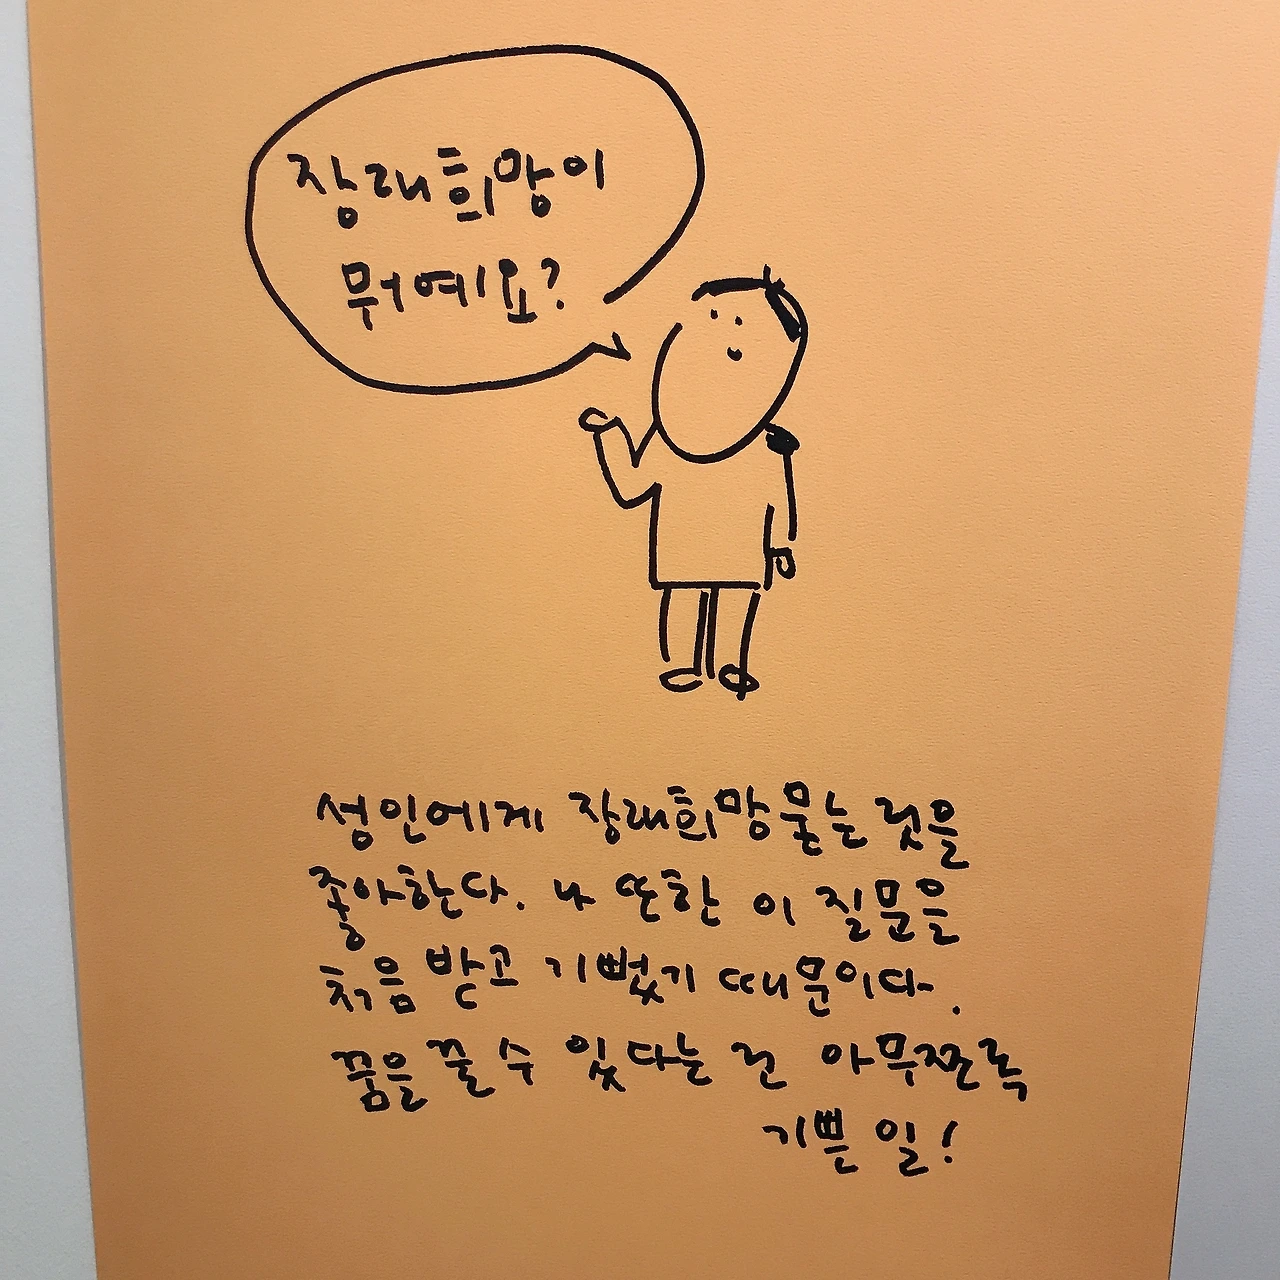 장래희망이
뭐예요?
성인에게 장래희망 묻는 것을
좋아한다. 나 또한 이 질문을
처음 받고 기뻤기 때문이다.
꿈을 꿀 수 있다는 건 아무쪼록
기쁜 일!